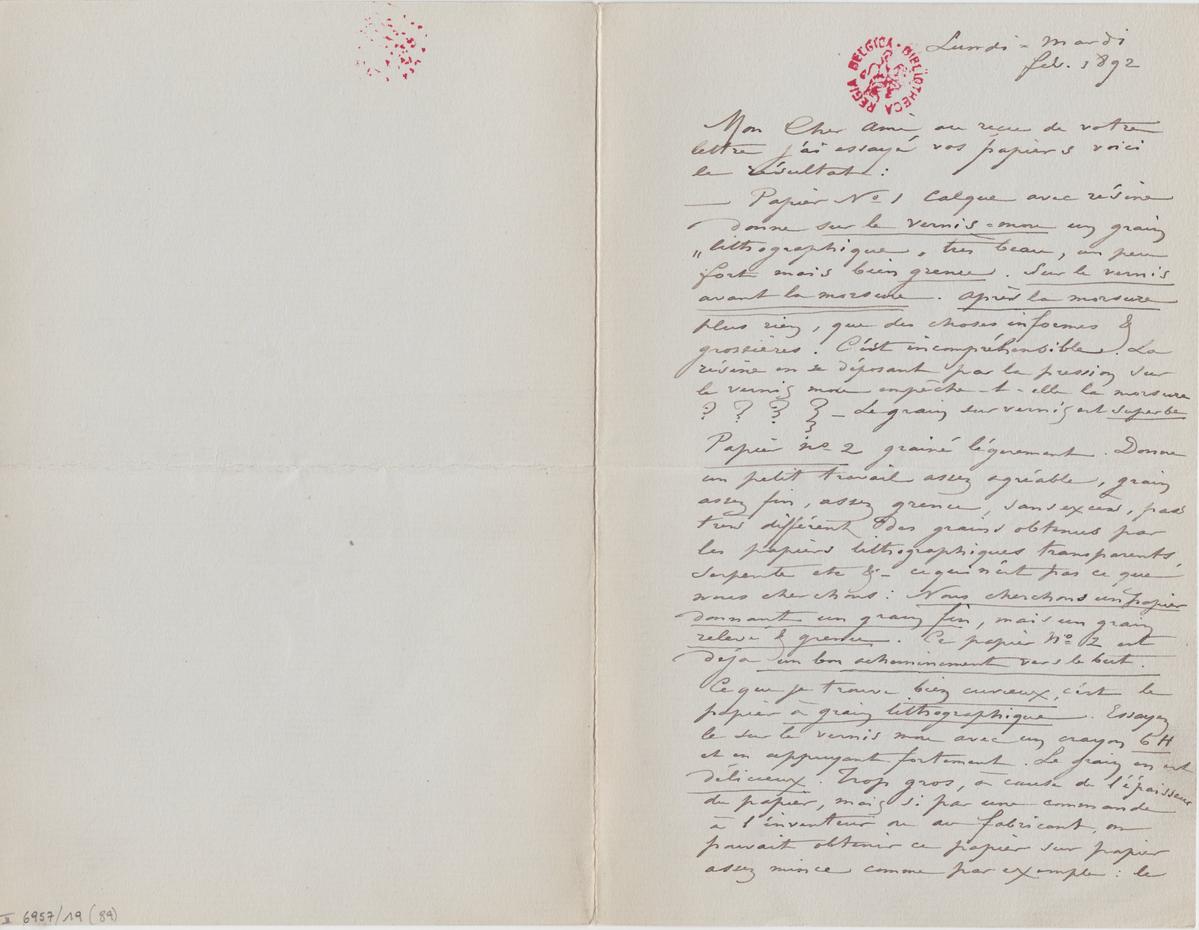 REGIA BELGICA · BIBLIOTHECA
Lundi - mardi
fev. 1892
Mon Cher Ami au recu de votre
lettre j'ai essayé vos papiers voici
le résultat :
— Papier No 1 Calque avec résine
donne sur le vernis = mou un grain
"lithographique" très beau, un peu
fort mais bien grence. Sur le vernis
avant la morsure. Après la morsure
plus rien, que des choses informes &
grossières. C'est incompréhensible. La
résine en se déposant par la pression sur
le vernis mou empêche-t-elle la morsure
? ? ? ? — Le grain sur vernis est superbe
Papier no 2 grainé légèrement. Donne
un petit travail assez agréable, grain
assez fin, assez grence, sans excès, pas
très différent des grains obtenus par
les papiers lithographiques transparents,
Serpente etc & - ce qui n'est pas ce que
nous cherchons : Nous cherchons un papier
donnant un grain fin, mais un grain
relevé & grence. Ce papier No 2 est
déjà un bon acheminement vers le but.
Ce que je trouve bien curieux, c'est le
papier à grain lithographique. Essayez
le sur le vernis mou avec un crayon 6H
et en appuyant fortement. Le grain en est
délicieux. Trop gros, à cause de l'épaisseur
du papier, mais si par une commande
à l'inventeur ou au fabricant, on
pouvait obtenir ce papier sur papier
assez mince comme par exemple : le
II 6957/19 (89)